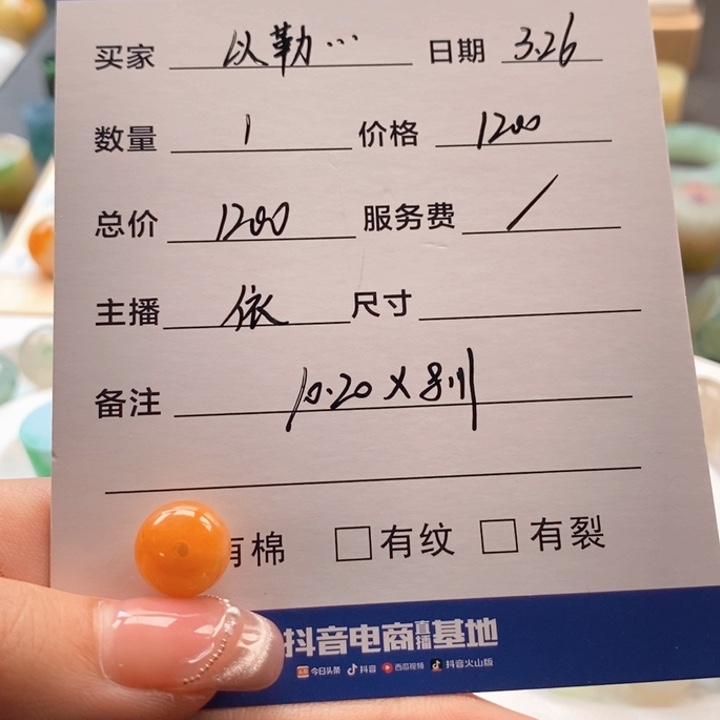 买家 以勒... 日期 3.26
数量 1 价格 1200
总价 1200 服务费 /
主播 依 尺寸
备注 10.20×8.11
有棉 □有纹 □有裂
抖音电商直播基地
今日头条 抖音 西瓜视频 抖音火山版